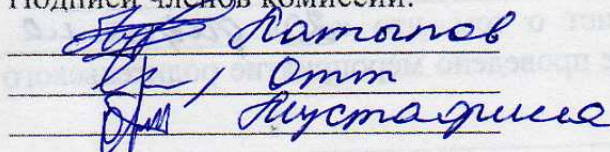 Подписи членов комиссии:
Латыпов
Отт
Мустафина